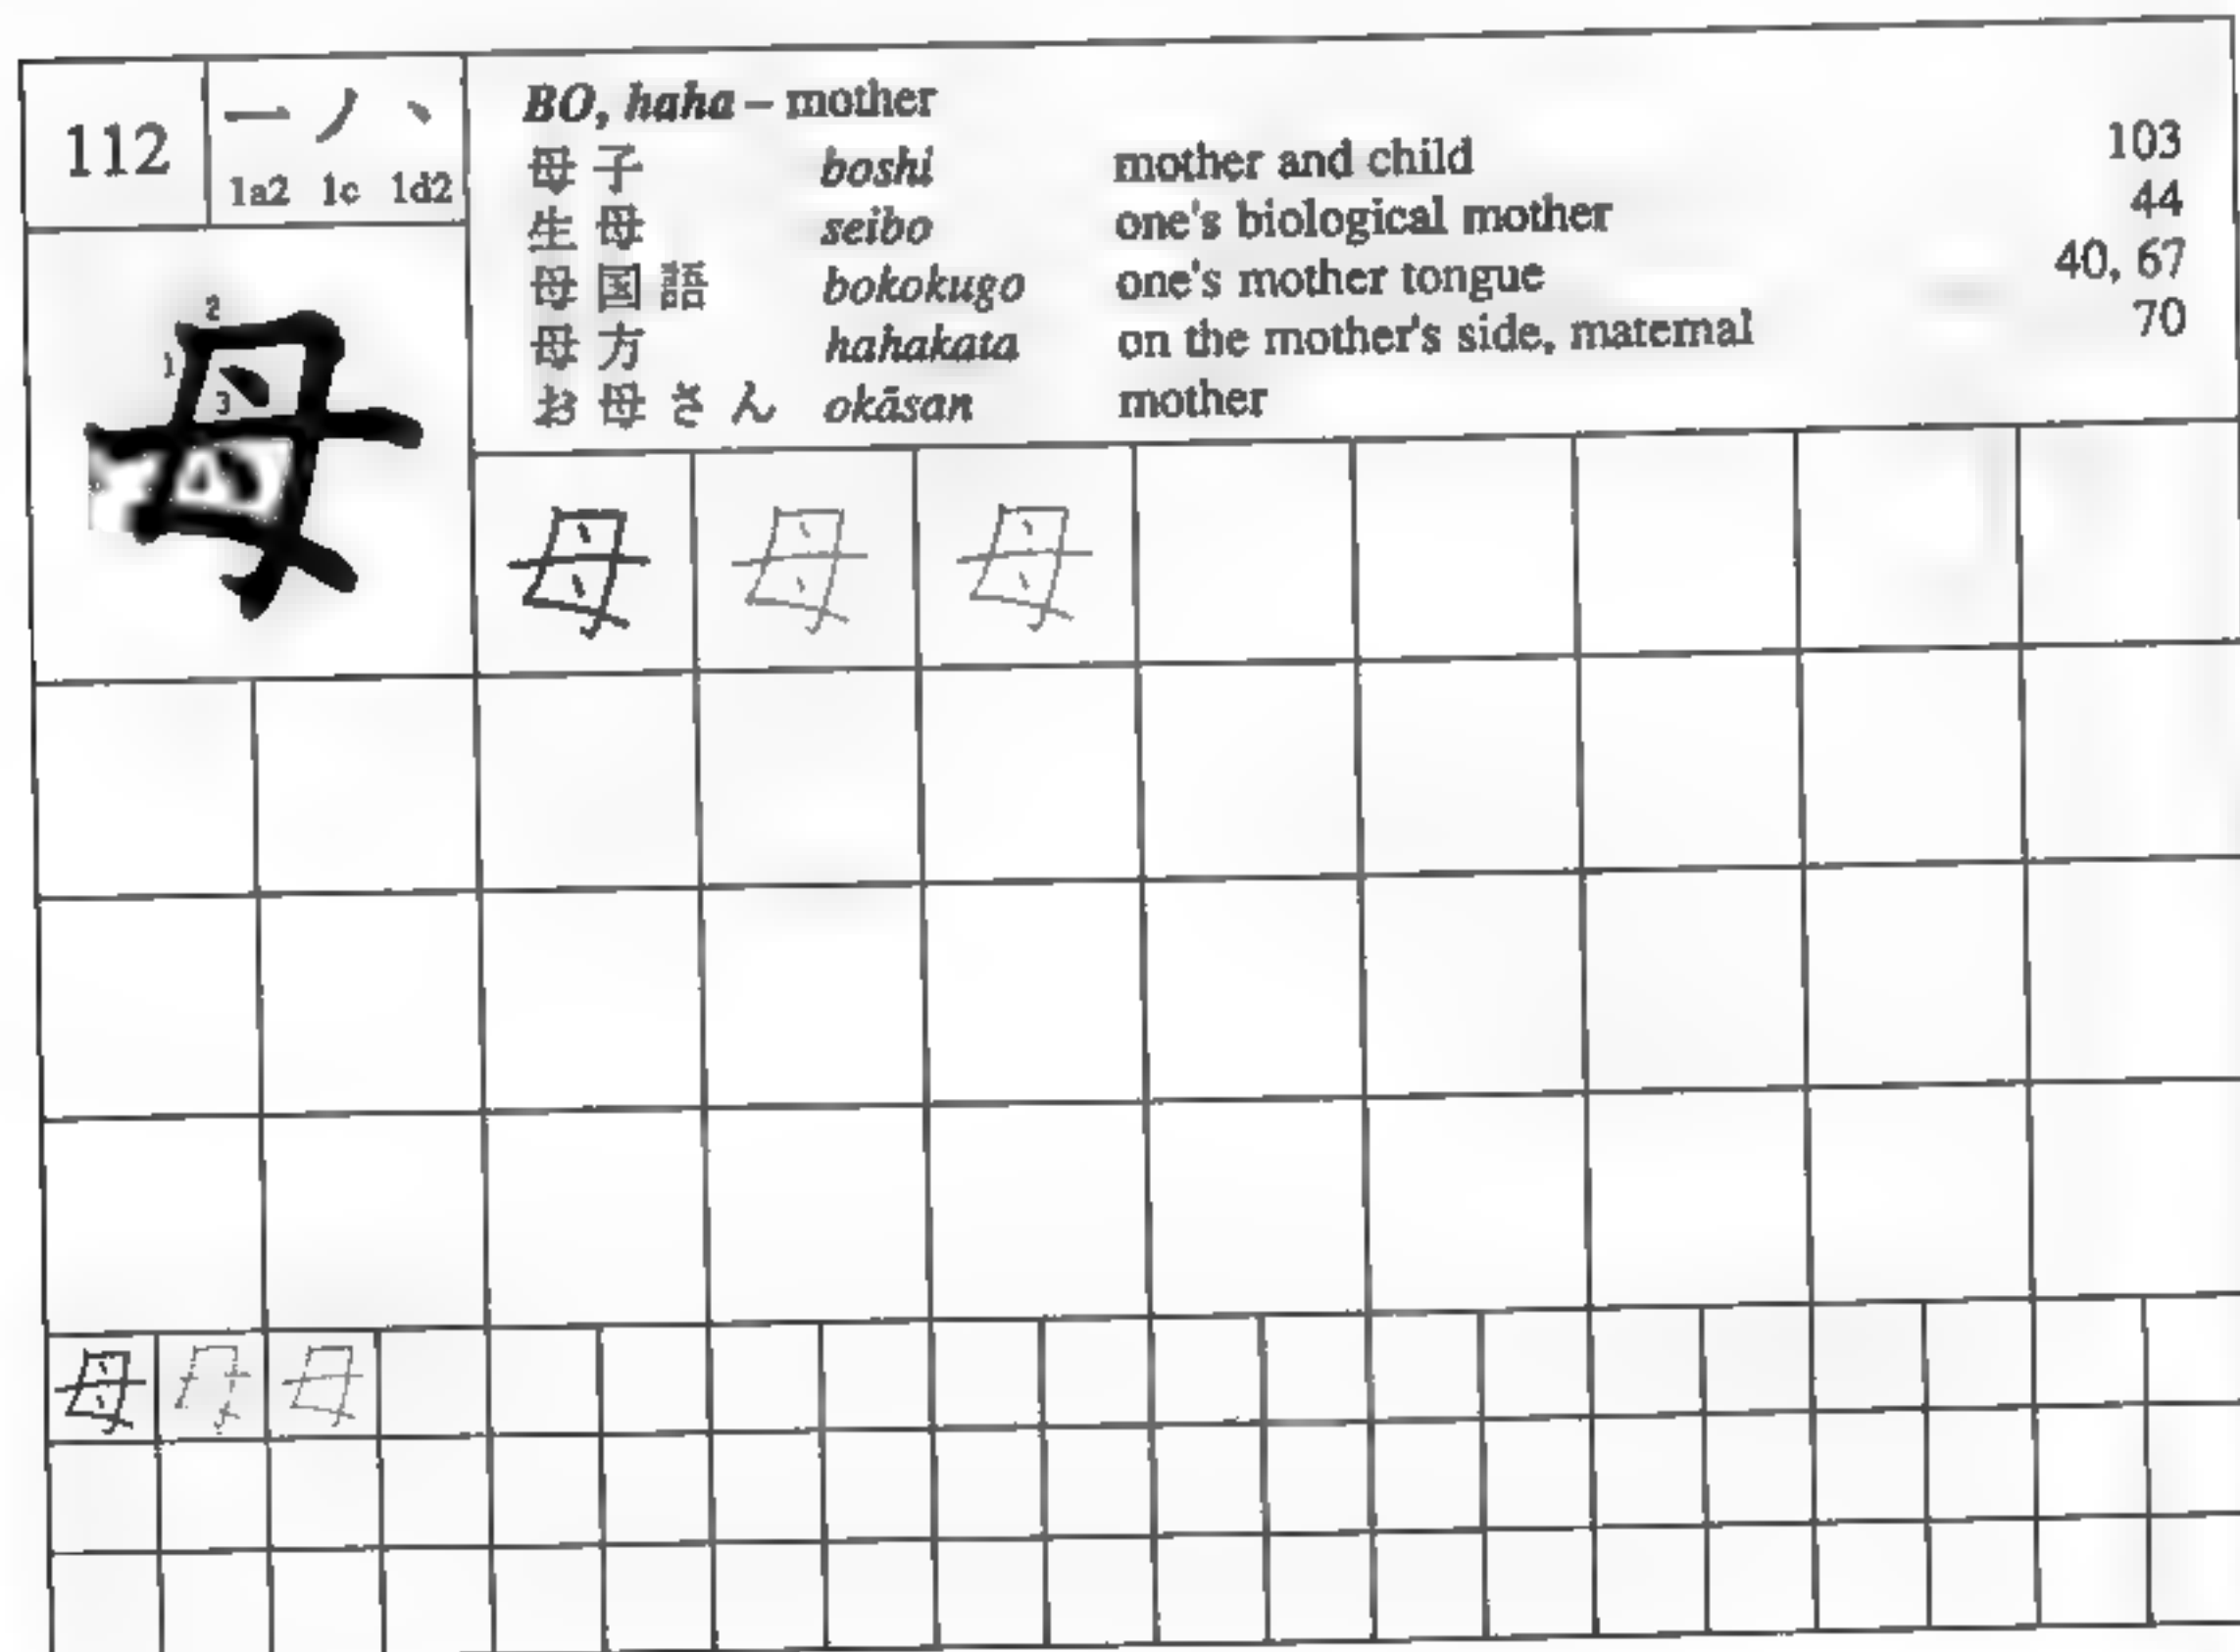 112
一 ノ 丶
1a2 1c 1d2
BO, haha – mother
母子 boshi mother and child 103
生母 seibo one's biological mother 44
母国語 bokokugo one's mother tongue 40, 67
母方 hahakata on the mother's side, maternal 70
お母さん okāsan mother
2
1
3
母
母 母 母
母